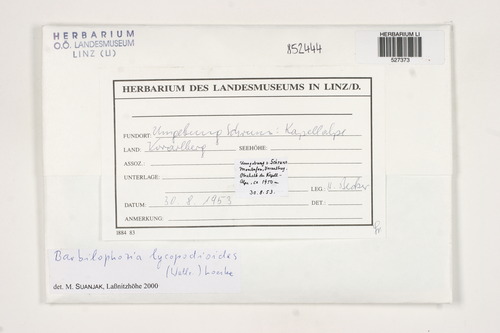 HERBARIUM
O.Ö. LANDESMUSEUM
LINZ (LI)
852444
HERBARIUM LI
527373
HERBARIUM DES LANDESMUSEUMS IN LINZ/D.
FUNDORT: Umgebung Schruns: Kapellalpe
LAND: Vorarlberg SEEHÖHE:
ASSOZ.:
Umgebung v. Schruns
Montafon, Vorarlberg
Oberhalb der Kapell-
Alpe, ca 1950 m
30.8.53.
UNTERLAGE:
LEG.: H. Becker
DATUM: 30. 8. 1953 DET.:
ANMERKUNG:
J884 83
Barbilophozia lycopodioides
(Wallr.) Loeske
det. M. SUANJAK, Laßnitzhöhe 2000